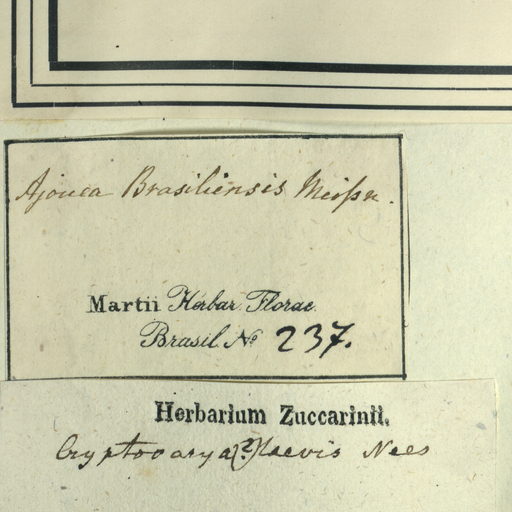 Ajouea Brasiliensis Meißn.
Martii Herbar. Florae
Brasil Nº 237.
Herbarium Zuccarinii.
Cryptocarya(?) laevis Nees